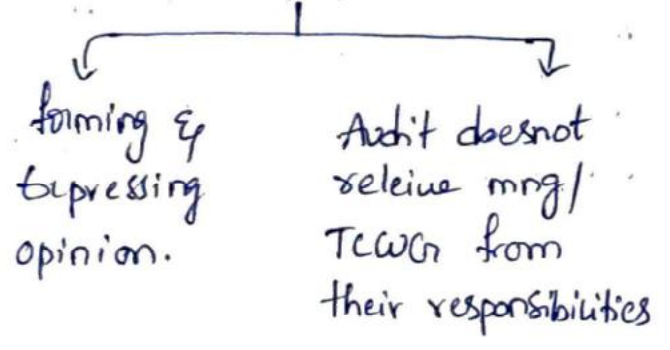 forming &
Expressing
opinion.
Audit doesnot
releive mng/
TCWG from
their responsibilities